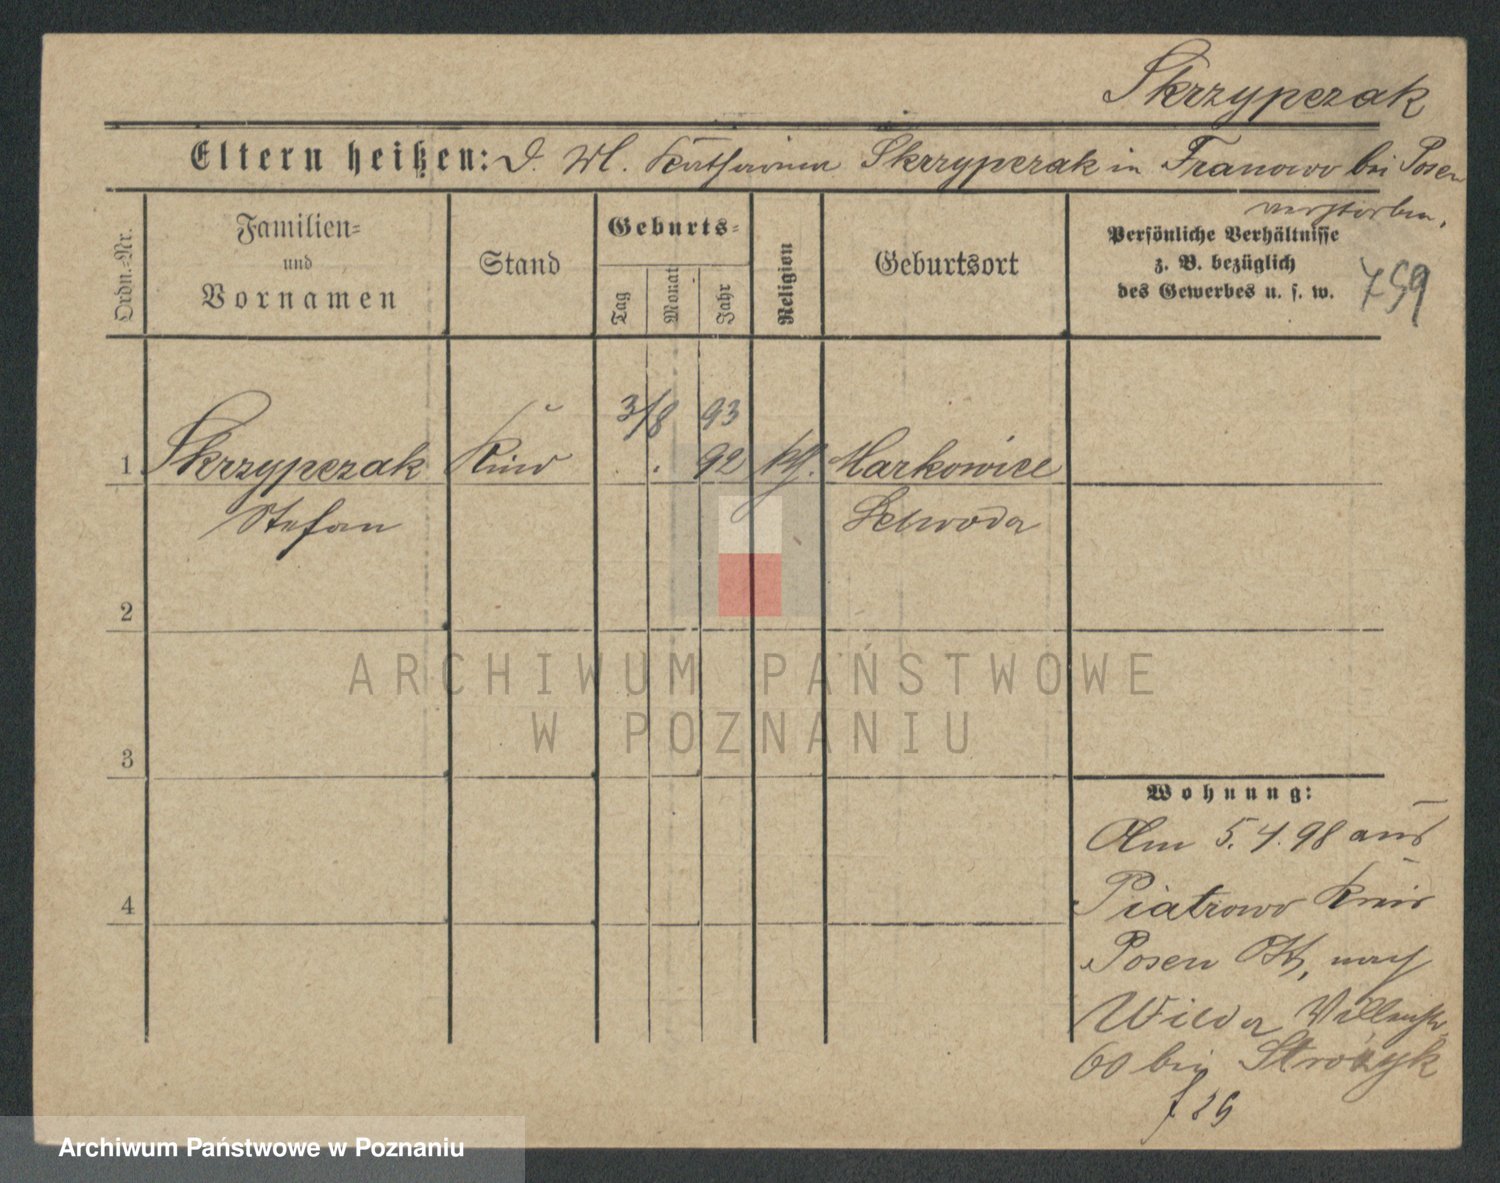 Skrzypczak
Eltern heißen: d. Wl. Katharina Skrzypczak in Franowo bei Posen
verstorben.
Ordn.-Nr.
Familien-
und
Vornamen
Stand
Geburts-
Tag
Monat
Jahr
Religion
Geburtsort
Persönliche Verhältnisse
z. B. bezüglich
des Gewerbes u. s. w.
759
3/8 93
1 Skrzypczak Kind . . 92 kth. Markowice
Stefan Schroda
2
3
4
Wohnung:
Am 5.4.98 aus
Piatrowo Kreis
Posen Ost, nach
Wilda Villenstr.
60 bei Strozyk
ARCHIWUM PAŃSTWOWE
W POZNANIU
Archiwum Państwowe w Poznaniu